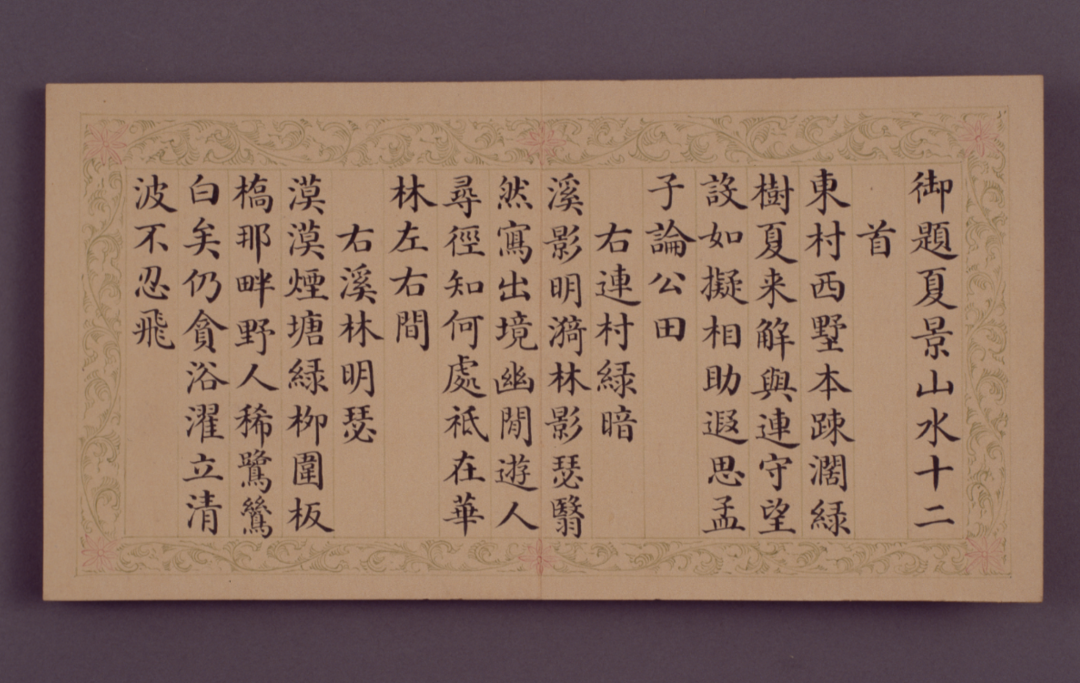 御題夏景山水十二
首
東村西墅本踈濶緑
樹夏来解與連守望
設如擬相助遐思孟
子論公田
右連村緑暗
溪影明漪林影瑟翳
然寫出境幽閒遊人
尋徑知何處祗在華
林左右間
右溪林明瑟
漠漠煙塘緑栁圍板
橋那畔野人稀鷺鷥
白矣仍貪浴濯立清
波不忍飛